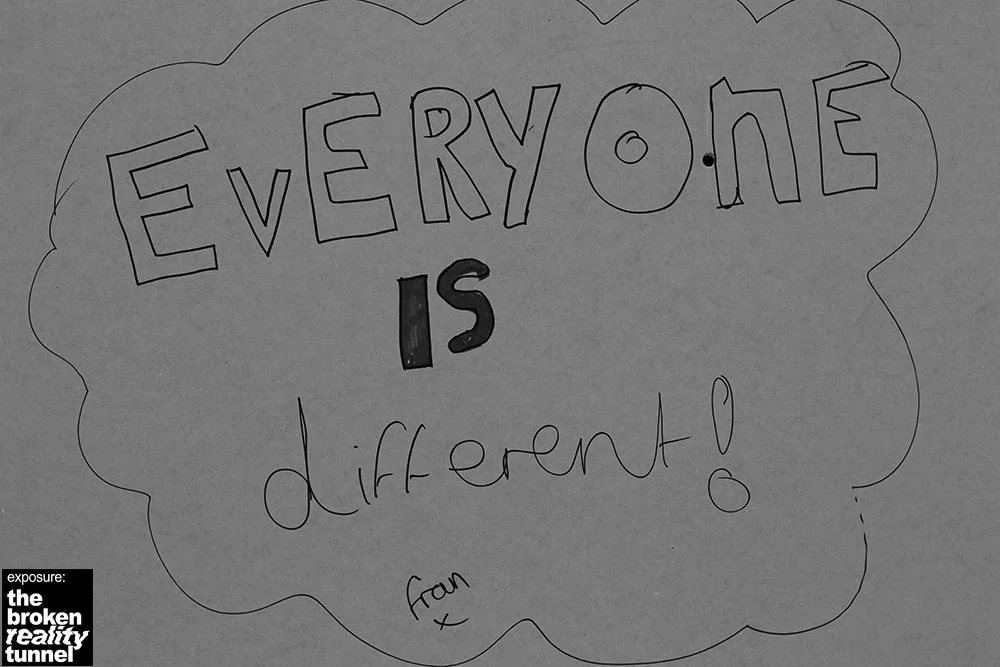 EVERYONE
IS
different!
fran
x
exposure:
the
broken
reality
tunnel